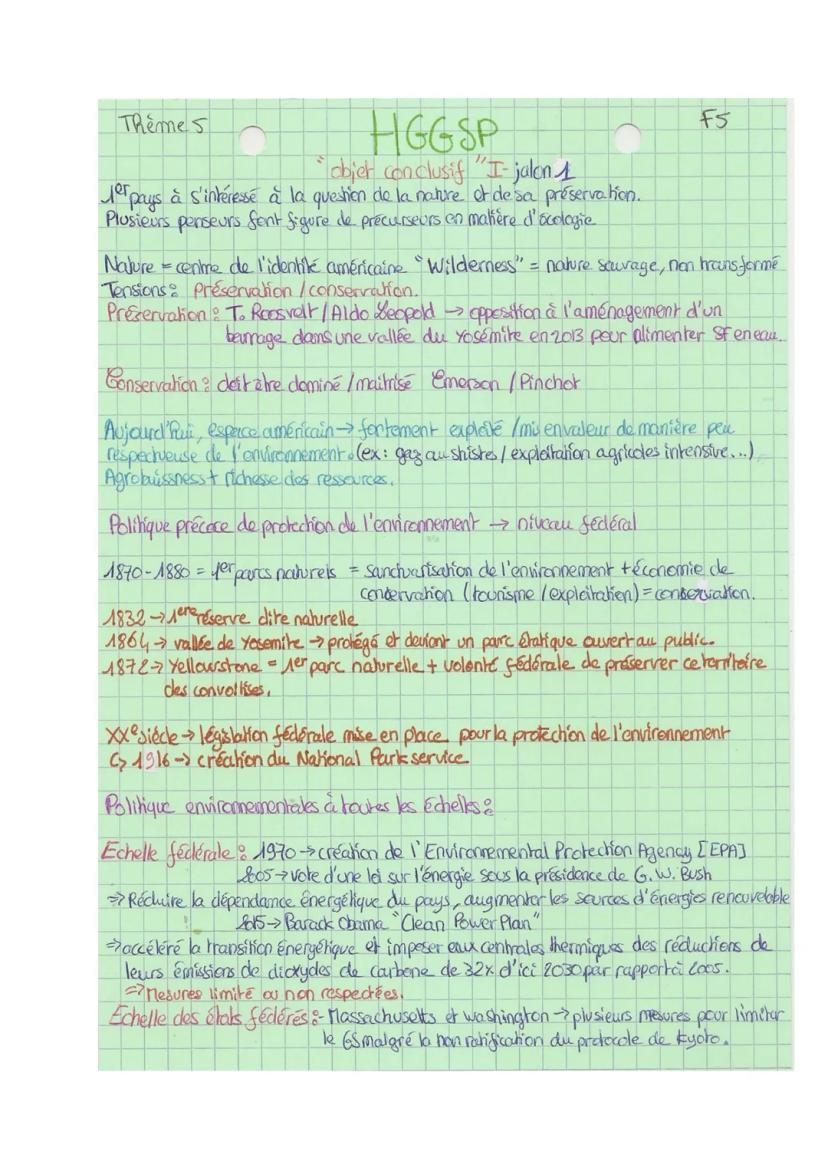 Thème 5
HGGSP
F5
"objet conclusif" I- jalon 1
1er pays à s'intéressé à la question de la nature et de sa préservation.
Plusieurs penseurs font figure de précurseurs en matière d'écologie
Nature = centre de l'identité américaine "Wilderness" = nature sauvage, non transformé
Tensions : Préservation / conservation.
Préservation : T. Roosvelt / Aldo Leopold → opposition à l'aménagement d'un
barrage dans une vallée du Yosémite en 2013 pour alimenter SF en eau.
Conservation : doit être dominé / maitrisé Emerson / Pinchot
Aujourd'hui, espace américain → fortement exploité / mis en valeur de manière peu
respectueuse de l'environnement. (ex : gaz au shistes / exploitation agricoles intensive...)
Agrobuissness + richesse des ressources.
Politique précoce de protection de l'environnement → niveau fédéral
1870-1880 = 1er parcs naturels = sanctuarisation de l'environnement + économie de
conservation (tourisme / exploitation) = conservation.
1832 → 1ere réserve dite naturelle
1864 → vallée de Yosemite → protégé et devient un parc étatique ouvert au public.
1872 → Yellowstone = 1er parc naturelle + volonté fédérale de préserver ce territoire
des convoitises.
XXe siècle → législation fédérale mise en place pour la protection de l'environnement
↳ 1916 → création du National Park service
Politique environnementales à toutes les échelles :
Echelle fédérale : 1970 → création de l'Environnemental Protection Agency [EPA]
2005 → vote d'une loi sur l'énergie sous la présidence de G. W. Bush
⇒ Réduire la dépendance énergétique du pays, augmenter les sources d'énergies renouvelable
2015 → Barack Obama "Clean Power Plan"
⇒ accéléré la transition énergétique et imposer aux centrales thermiques des réductions de
leurs émissions de dioxydes de carbone de 32% d'ici 2030 par rapport à 2005.
⇒ Mesures limité ou non respectées.
Echelle des états fédérés : - Massachusetts et Washington → plusieurs mesures pour limiter
le GS malgré la non ratification du protocole de Kyoto.